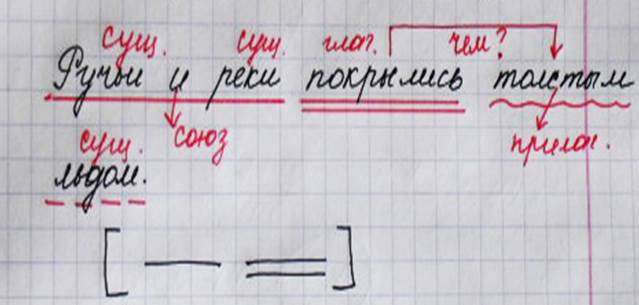 сущ. сущ. глаг. чем?
Ручьи и реки покрылись толстым
сущ. союз прилаг.
льдом.